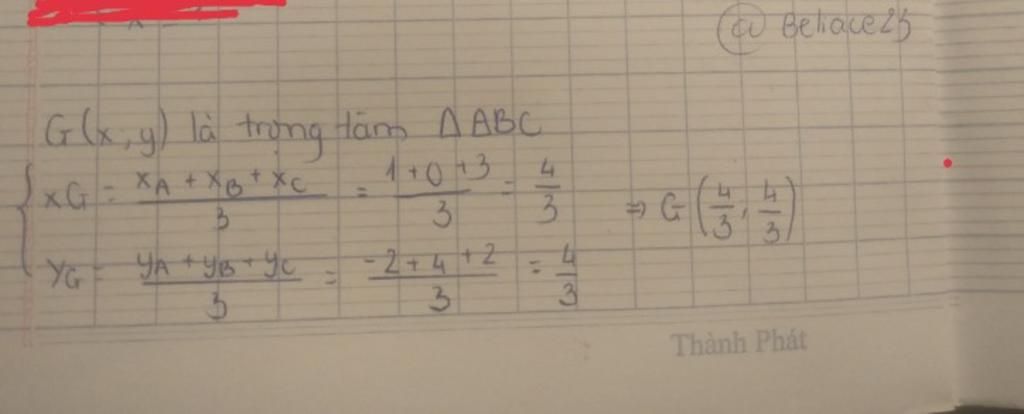 @ Behace25
G(x, y) là trọng tâm ΔABC
xG = xA + xB + xC / 3 = 1 + 0 + 3 / 3 = 4/3
yG = yA + yB + yC / 3 = -2 + 4 + 2 / 3 = 4/3
⇒ G (4/3, 4/3)
Thành Phát